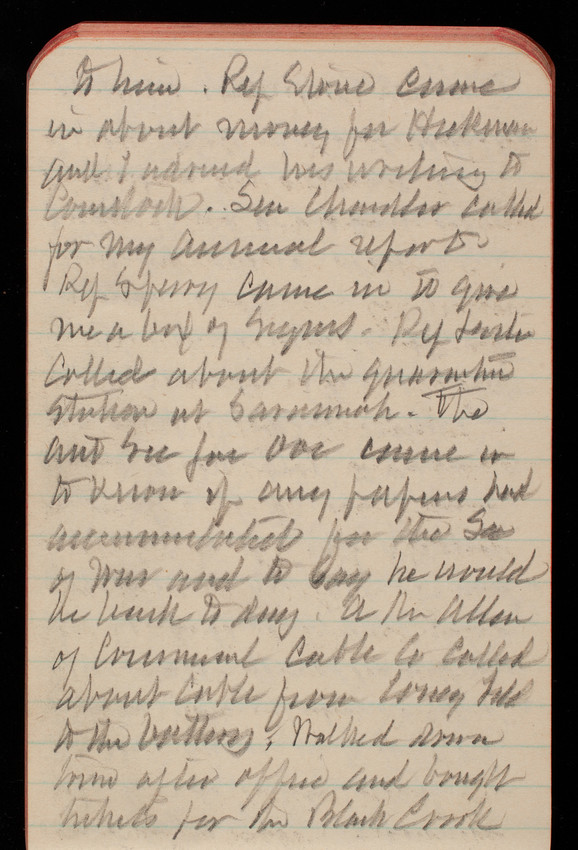 to him. Rep Stone came
in about money for Hickman
and I advised his writing to
Comstock. Sen Chandler called
for my annual report.
Rep Sperry came in to give
me a box of Segars. Rep Lester
called about the quarantine
station at Savannah. The
Ast Sec for War came in
to know if any papers had
accumulated for the Sec
of War and to say he would
be back to day. A Mr Allen
of Commercial Cable Co called
about cable from Coney Isld
to the battery. Walked down
town after office and bought
tickets for the Black Crook